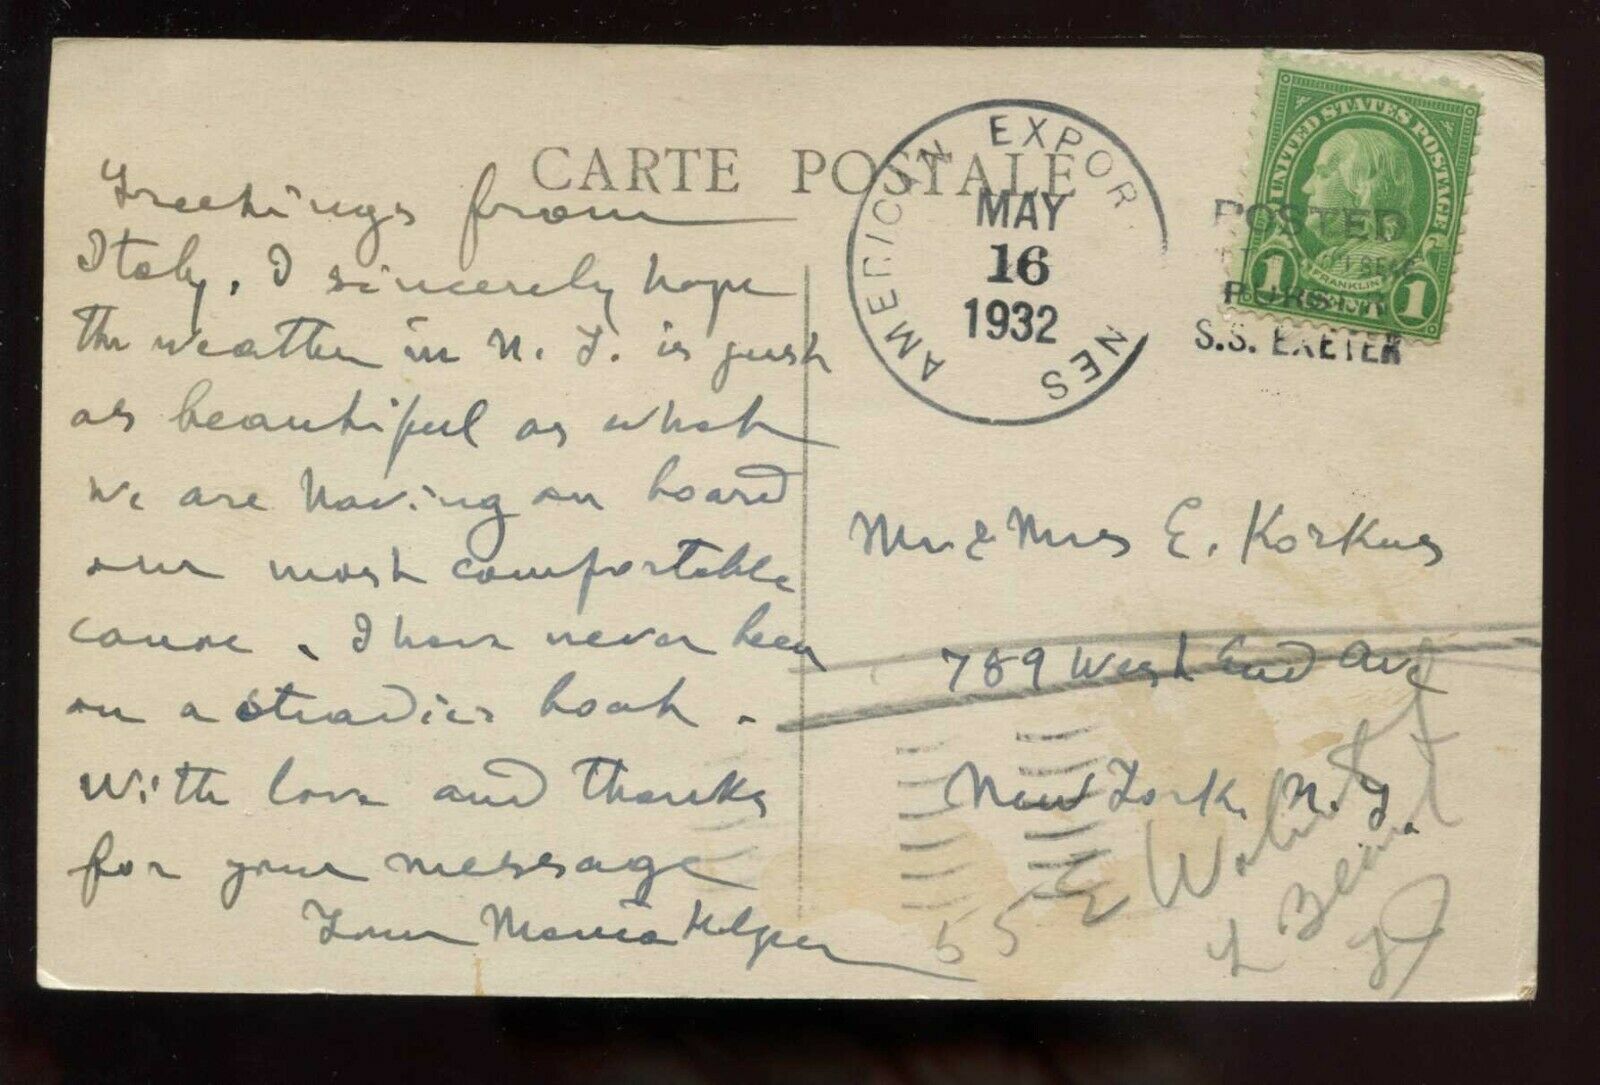 CARTE POSTALE
Greetings from
Italy. I sincerely hope
the weather in N. Y. is just
as beautiful as what
we are having on board
our most comfortable
canoe. I have never been
on a steadier boat.
With love and thanks
for your message
Your Maria
AMERICAN EXPOR NES
MAY
16
1932
UNITED STATES POSTAGE
1 FRANKLIN 1
POSTED
S.S. EXETER
Mr & Mrs E. Korkus
789 West End Ave
New York, N. Y.
55 E